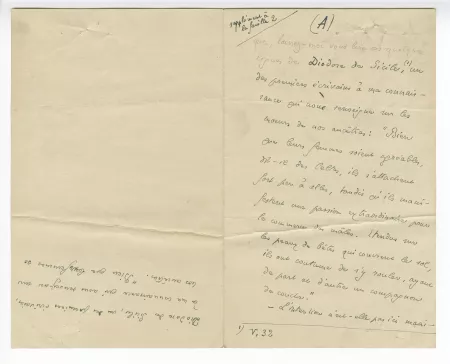 supplément à
la feuille 2
(A)
Diodore de Sicile, un
des premiers écrivains à ma connais-
sance qui nous renseignent sur les
mœurs de nos ancêtres : "Bien
que leurs femmes soient agréables,
dit-il des Celtes, ils s'attachent
fort peu à elles, tandis qu'ils mani-
festent une passion extraordinaire pour
le commerce des mâles. Étendus sur
les peaux de bêtes qui couvrent le sol,
ils ont coutume de s'y rouler, ayant
de part et d'autre un compagnon
de couche."
— L'intention n'est-elle pas ici mani-
1) V, 32
Diodore de Sicile, un des premiers écrivains,
à ma connaissance qui nous renseignent sur